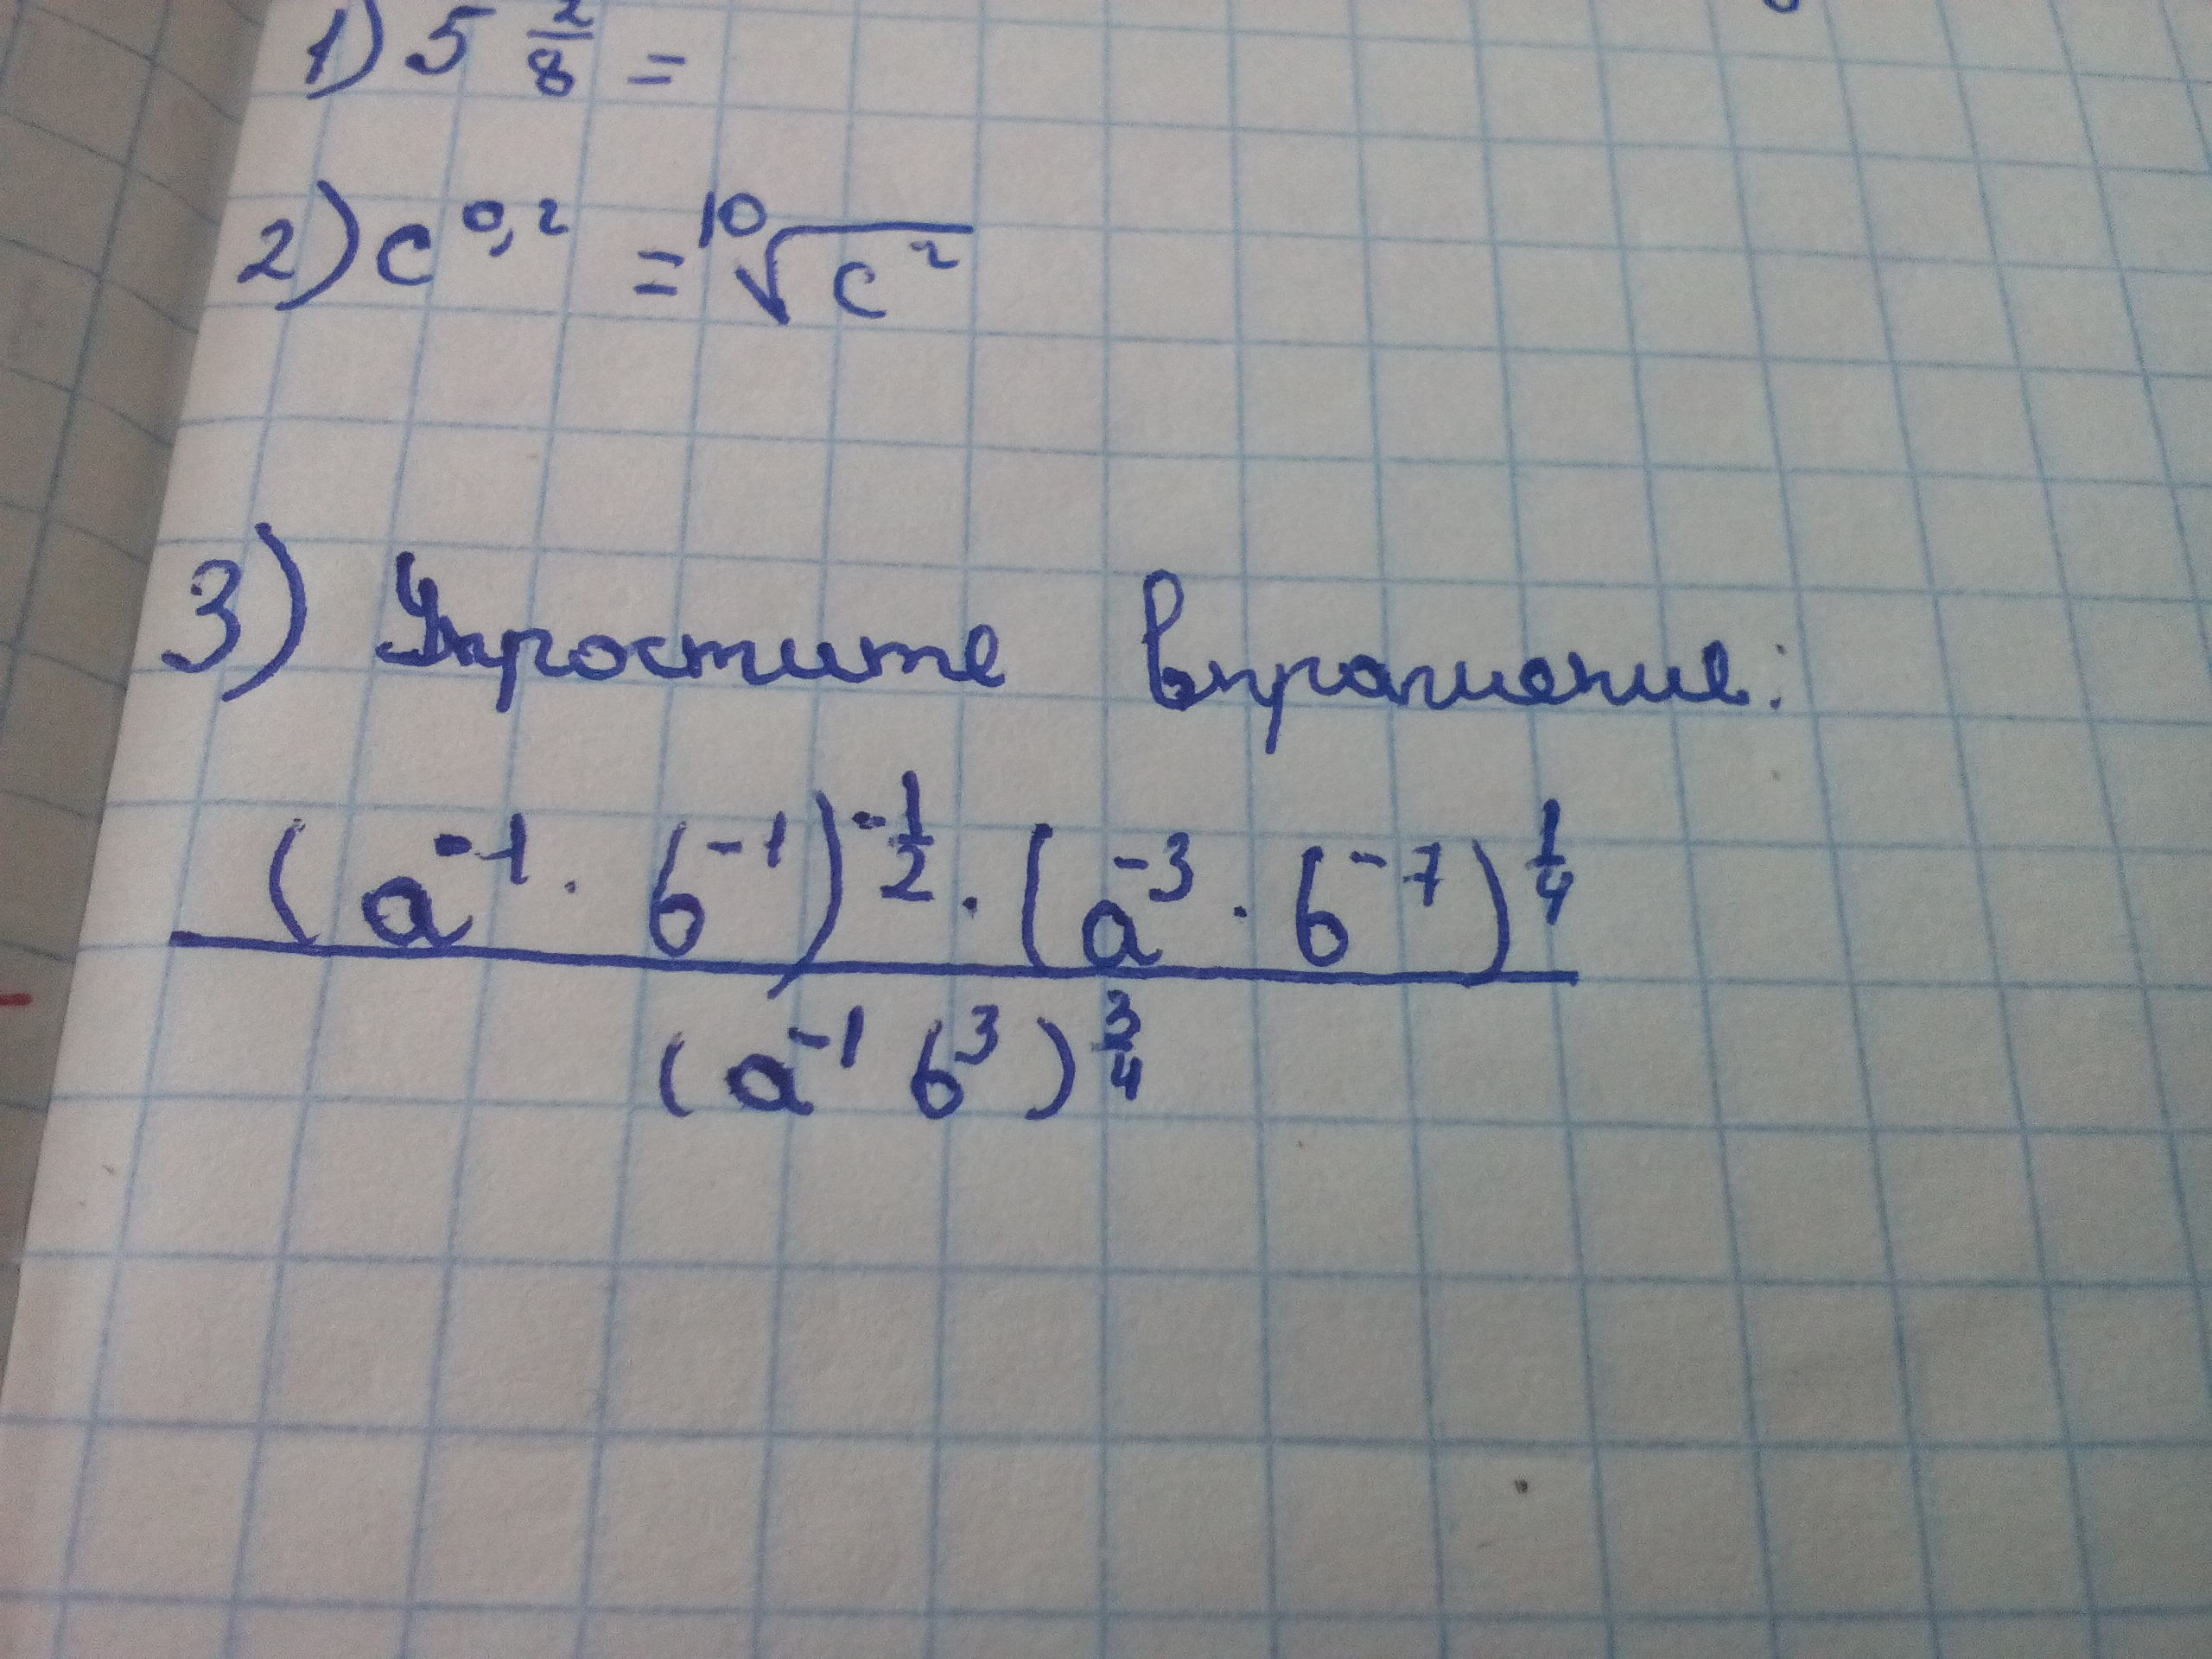 1) 5^(2/8) =
2) c^(0,2) = ¹⁰√(c²)
3) Упростите выражение:
(a^(-1) · b^(-1))^(-1/2) · (a^(-3) · b^(-7))^(1/4)
(a^(-1) b^3)^(3/4)